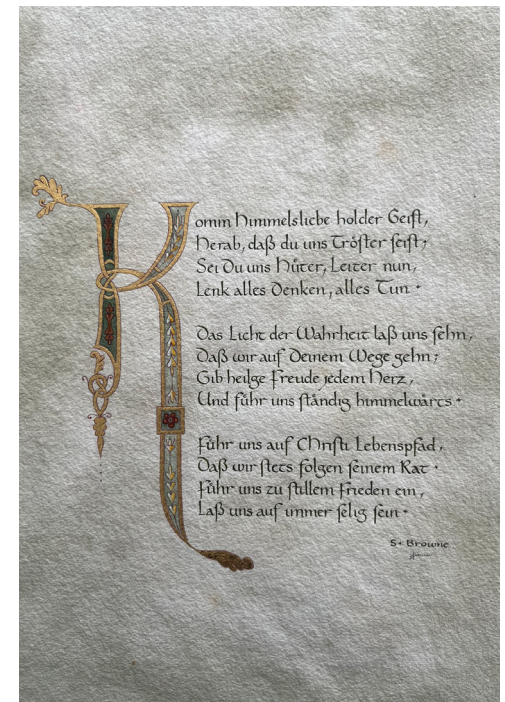 Komm Himmelsliebe holder Geist,
Herab, daß du uns Tröster seist;
Sei Du uns Hüter, Leiter nun,
Lenk alles Denken, alles Tun.
Das Licht der Wahrheit laß uns sehn,
Daß wir auf Deinem Wege gehn;
Gib heilge Freude jedem Herz,
Und führ uns ständig himmelwärts.
Führ uns auf Christi Lebenspfad,
Daß wir stets folgen seinem Rat.
Führ uns zu stillem Frieden ein,
Laß uns auf immer selig sein.
S. Browne